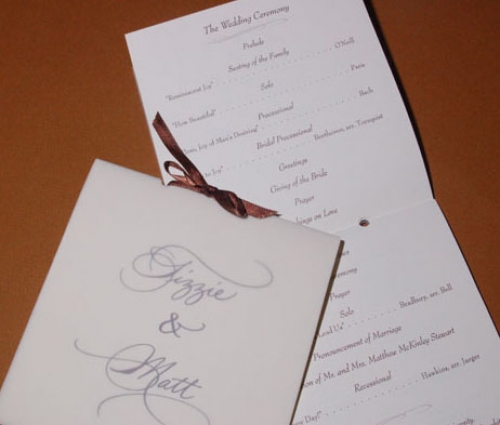 The Wedding Ceremony
Prelude
Seating of the Family
"Reminiscent Joy" O'Neill
Solo
"How Beautiful" Paris
Processional
Joy of Man's Desiring" Bach
Bridal Processional
to Joy" Beethoven, arr. Tornquist
Greetings
Giving of the Bride
Prayer
on Love
Ceremony
Prayer
Solo
Lead Us" Bradbury, arr. Bell
Pronouncement of Marriage
of Mr. and Mrs. Matthew McKinley Stewart
Recessional
Day!" Hawkins, arr. Jaeger
Lizzie
&
Matt